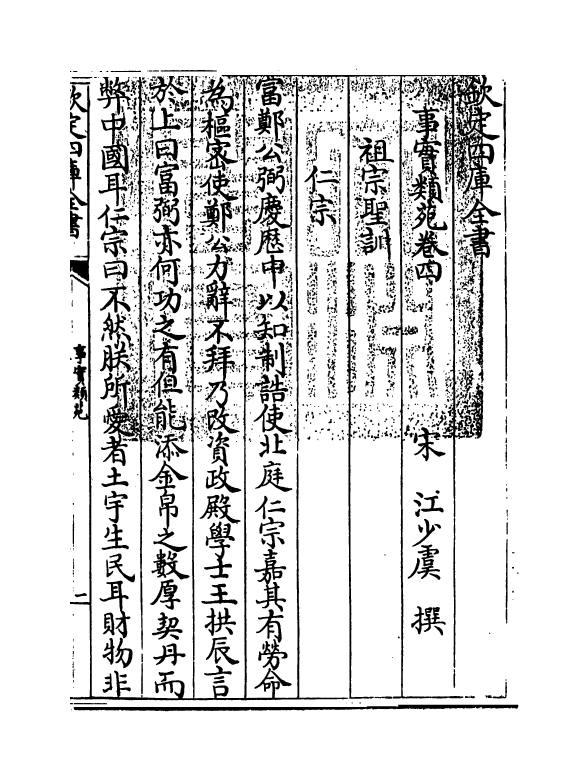 欽定四庫全書
事實類苑卷四
宋 江少虞 撰
祖宗聖訓
仁宗
富鄭公弼慶厯中以知制誥使北庭仁宗嘉其有勞命
為樞密使鄭公力辭不拜乃改資政殿學士王拱辰言
於上曰富弼亦何功之有但能添金帛之數厚契丹而
弊中國耳仁宗曰不然朕所愛者土宇生民耳財物非
欽定四庫全書
事實類苑
二